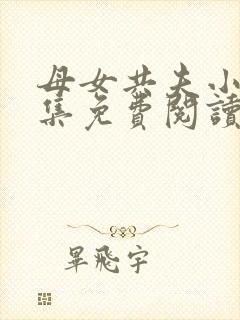 母女共夫小
集免費閱讀
畢飛宇